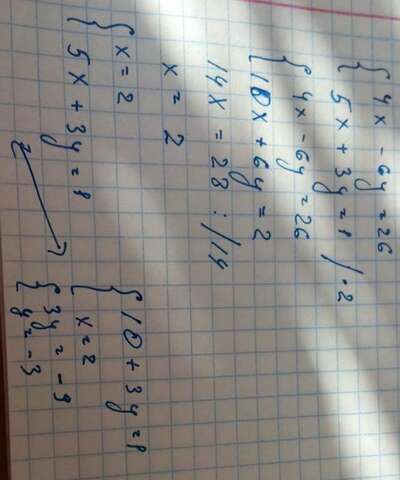 { 4x - 6y = 26
5x + 3y = 1 / · 2
{ 4x - 6y = 26
10x + 6y = 2
14x = 28 : /14
x = 2
{ x = 2
5x + 3y = 1
{ 10 + 3y = 1
x = 2
{ 3y = -9
y = -3